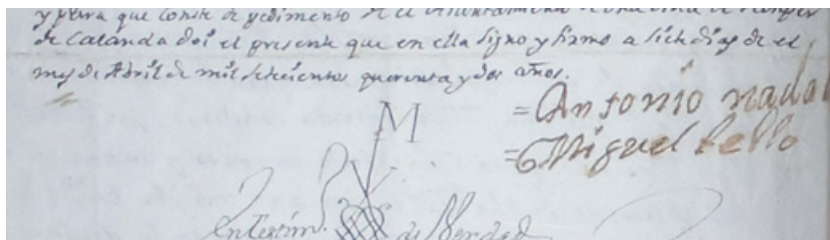 y para que conste de pedimento de el Aiuntamiento de
de Calanda doi el presente que en ella signo y firmo a siete dias de el
mes de Abril de mil setecientos quarenta y dos años.
= Antonio nadal
= Miguel bello
M
En testim.º de Verdad